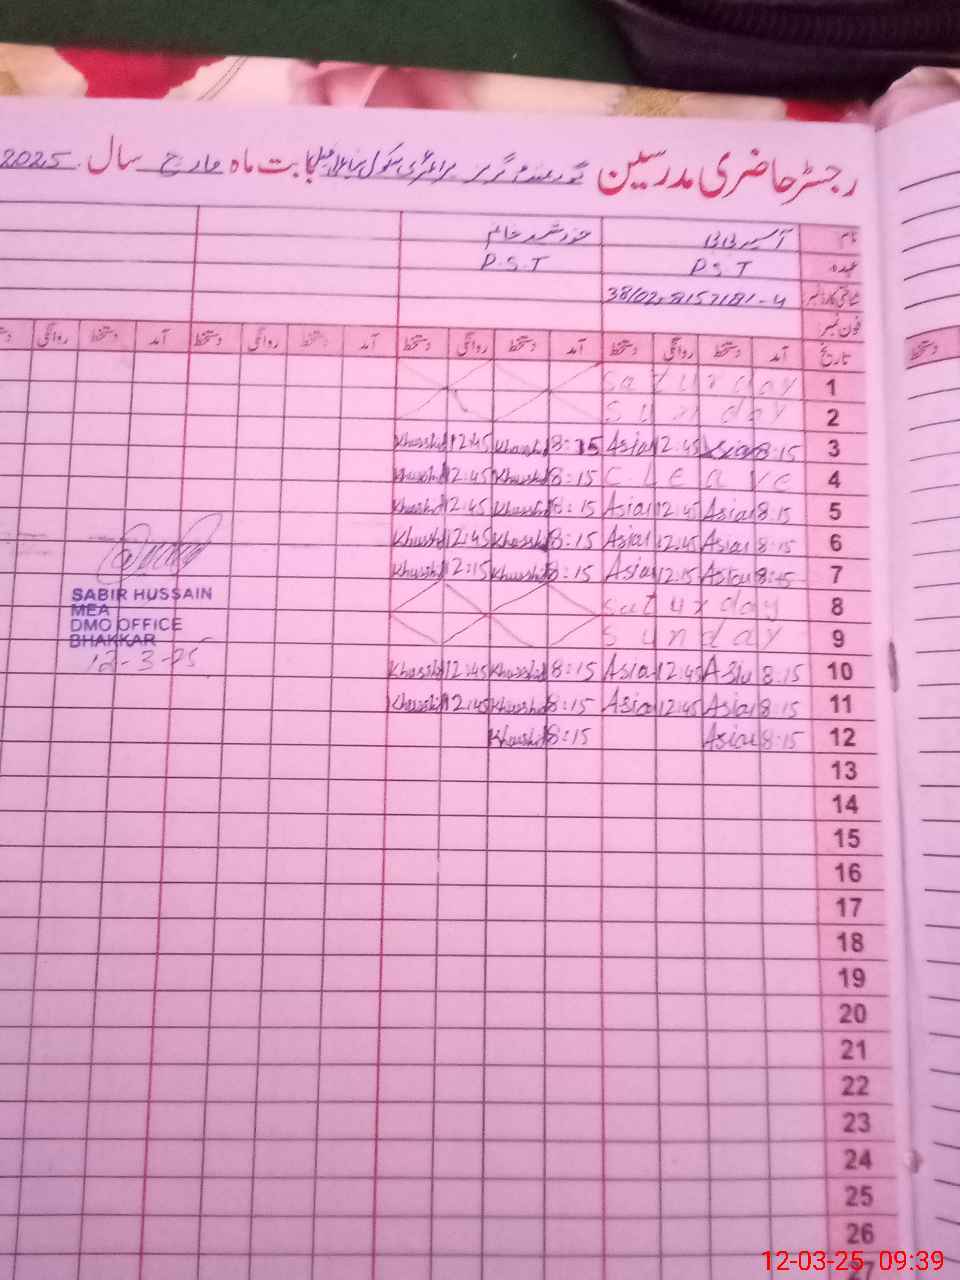 رجسٹر حاضری مدرسین گورنمنٹ گرلز پرائمری سکول بابت ماہ مارچ سال 2025
نام آسیہ بی بی خورشید خانم
عہدہ P.S.T P.S.T
شناختی کارڈ نمبر
فون نمبر:
تاریخ آمد دستخط روانگی دستخط آمد دستخط روانگی دستخط آمد دستخط روانگی دستخط آمد دستخط روانگی دستخط
1 Saturday
2 Sunday
3 8:15 Asia 12:45 Asia 8:15 Khurshid 12:45 Khurshid
4 C LEAVE 8:15 Khurshid 12:45 Khurshid
5 8:15 Asia 12:45 Asia 8:15 Khurshid 12:45 Khurshid
6 8:15 Asia 12:45 Asia 8:15 Khurshid 12:45 Khurshid
7 8:15 Asia 12:15 Asia 8:15 Khurshid 12:15 Khurshid
8 Saturday
9 Sunday
10 8:15 Asia 12:45 Asia 8:15 Khurshid 12:45 Khurshid
11 8:15 Asia 12:45 Asia 8:15 Khurshid 12:45 Khurshid
12 8:15 Asia 8:15 Khurshid
13
14
15
16
17
18
19
20
21
22
23
24
25
26
SABIR HUSSAIN
MEA
DMO OFFICE
BHAKKAR
12-3-25
دستخط
12-03-25 09:39